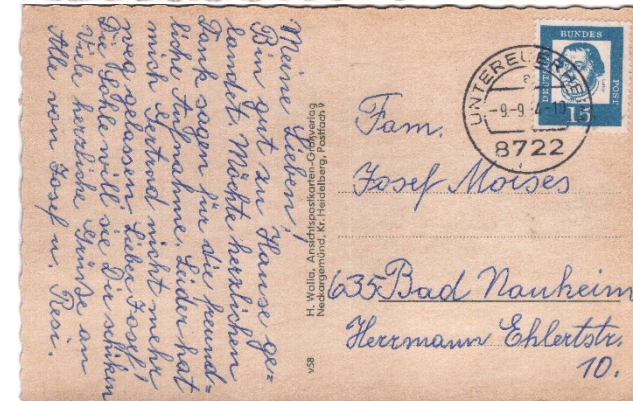 Meine Lieben!
Bin gut zu Hause ge-
landet. Möchte herzlichen
Dank sagen für die freund-
liche Aufnahme. Leider hat
mich Gertrud nicht mehr
weg gelassen. Lieber Josef!
Die Sohle will sie Dir schiken
Viele herzliche Grüße an
Alle von Josef u. Resi.
H. Walla, Ansichtspostkarten-Großverlag
Neckargemünd, Kr. Heidelberg, Postfach 9
v58
DEUTSCHE BUNDES POST
15
UNTEREUERHEIM
a
-9.-9. -10
8722
Fam.
Josef Moises
635 Bad Nauheim
Herrmann Ehlertstr.
10.